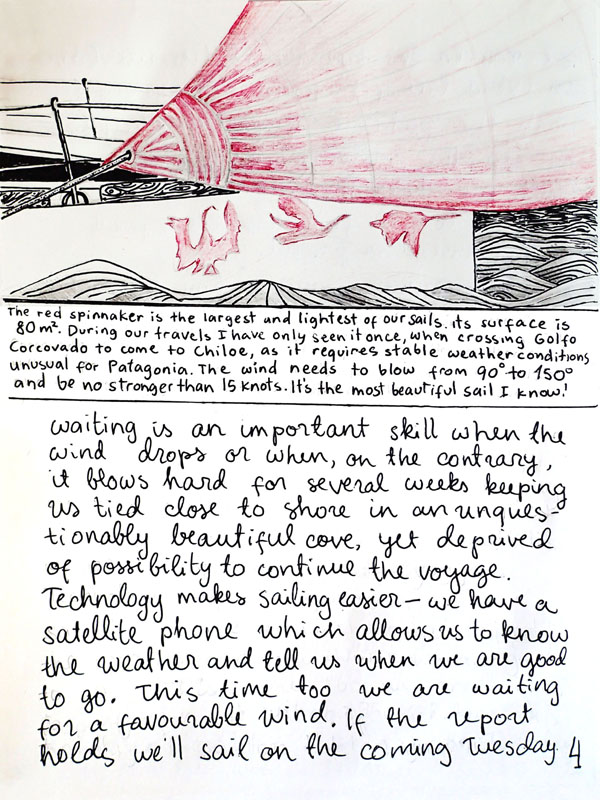 The red spinnaker is the largest and lightest of our sails. Its surface is
80m². During our travels I have only seen it once, when crossing Golfo
Corcovado to come to Chiloe, as it requires stable weather conditions
unusual for Patagonia. The wind needs to blow from 90° to 150°
and be no stronger than 15 knots. It's the most beautiful sail I know!
waiting is an important skill when the
wind drops or when, on the contrary,
it blows hard for several weeks keeping
us tied close to shore in an unques-
tionably beautiful cove, yet deprived
of possibility to continue the voyage.
Technology makes sailing easier – we have a
satellite phone which allows us to know
the weather and tell us when we are good
to go. This time too we are waiting
for a favourable wind. If the report
holds we'll sail on the coming Tuesday 4